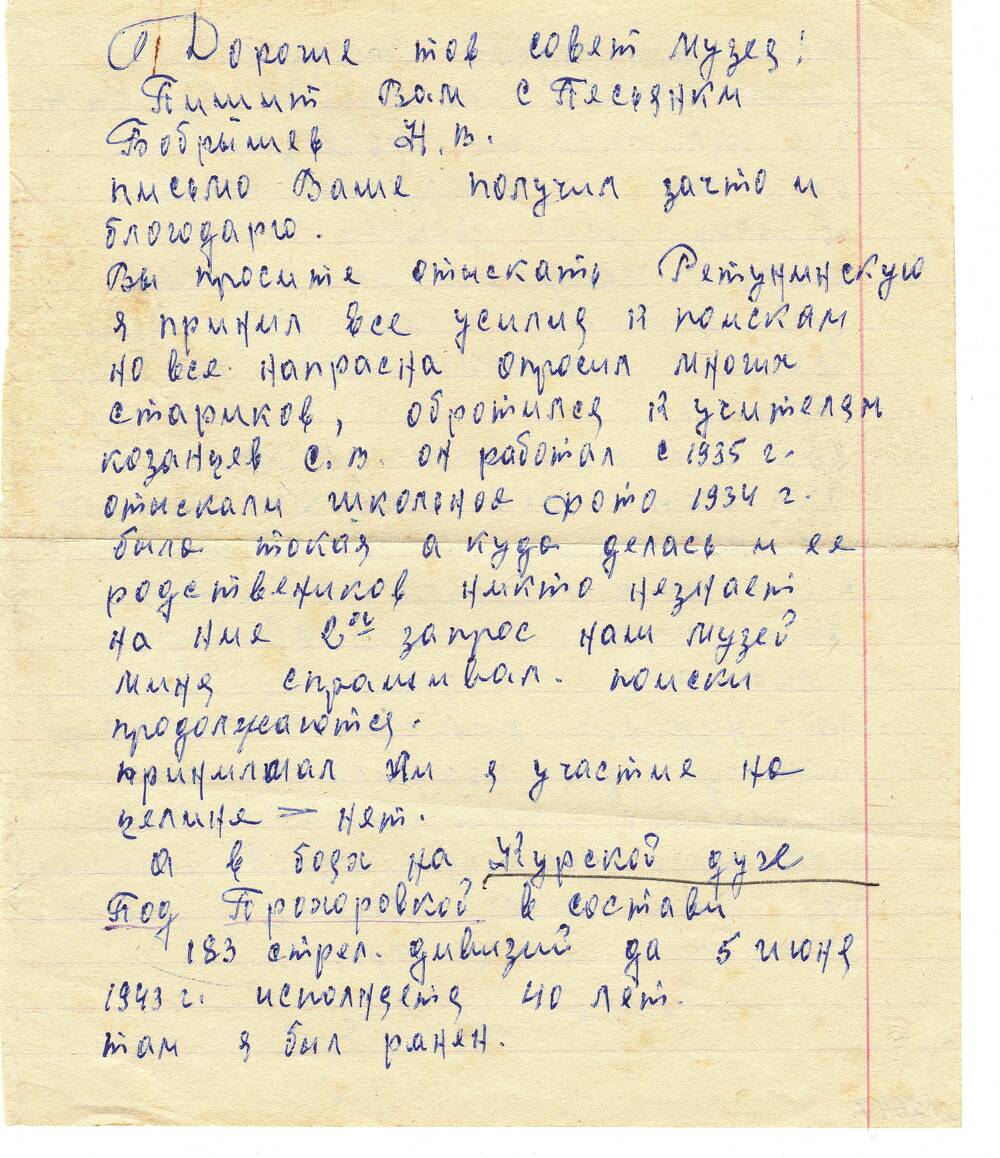 Дороже тов совет музея!
Пишит Вам с Песьянки
Бобрышев Н.В.
письмо Ваше получил зачто и
блогодарю.
Вы просите отыскать Ретунинскую
я принил все усилия к поискам
но все напрасна опросил многих
стариков, обротился к учителям
козанцев С.В. он работал с 1935 г.
отыскали школьное фото 1934 г.
была токая а куда делась и ее
родствеников никто незнает
на ние 2ой запрос наш музей
миня спрашивал. поиски
продолжаются.
принимал ли я участие на
целине = нет.
а в боях на Курской дуге
Под Прохоровкой в состави
183 стрел. дивизий да 5 июня
1943 г. исполняетя 40 лет.
там я был ранен.